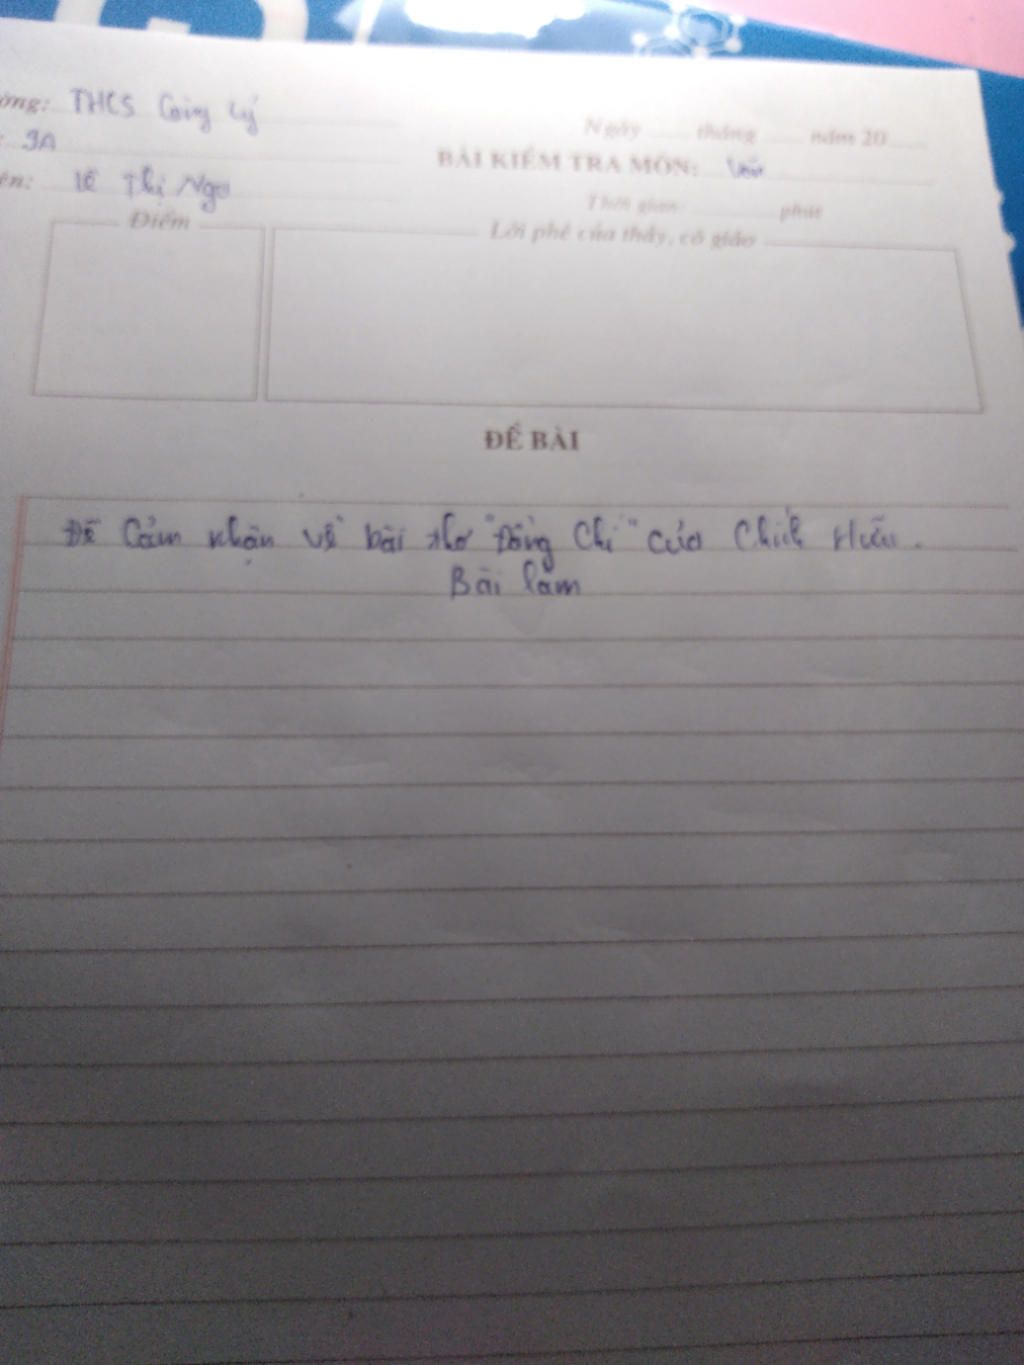 THCS Công Lý
Ngày ...... tháng ...... năm 20
9A
BÀI KIỂM TRA MÔN: Văn
Lê Thị Nga
Thời gian: ............ phút
Điểm
Lời phê của thầy, cô giáo
ĐỀ BÀI
Đề Cảm nhận về bài thơ "Đồng Chí" của Chính Hữu.
Bài làm